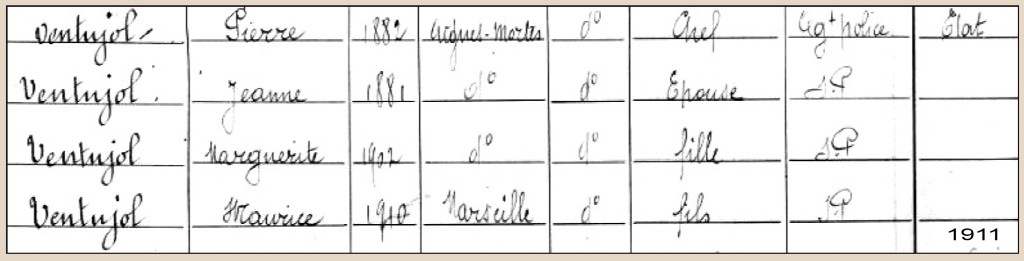 Ventujol Pierre 1882 Aigues-Mortes d° Chef Agt police Etat
Ventujol Jeanne 1881 d° d° Epouse S.P
Ventujol Marguerite 1902 d° d° fille S.P
Ventujol Maurice 1910 Marseille d° fils S.P
1911